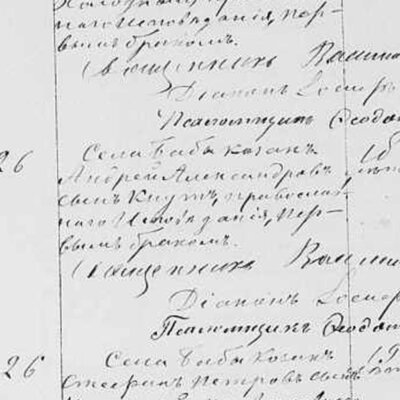 наго Исповѣданія, пер-
вымъ бракомъ.
Священникъ
Діаконъ Іосифъ
Псаломщикъ Ѳеодо
26 Села Бабы козакъ 18
Андрей Александровъ лѣтъ
сынъ Кнутъ, православ-
наго Исповѣданія, пер-
вымъ бракомъ.
Священникъ
Діаконъ Іосиф
Псаломщикъ Ѳеодо
26 Села Бабы Козакъ 19
Стефанъ Петровъ сынъ